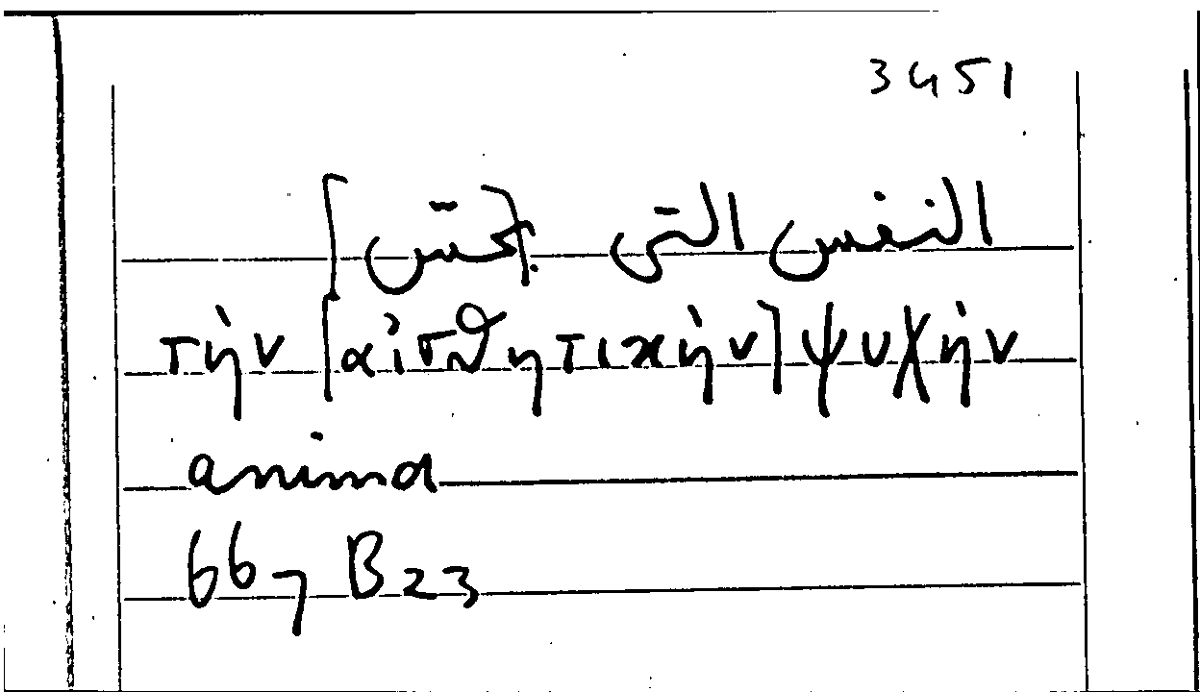 3451
النفس التى [تحس]
τὴν [αἰσθητικὴν] ψυχὴν
anima
667 B23